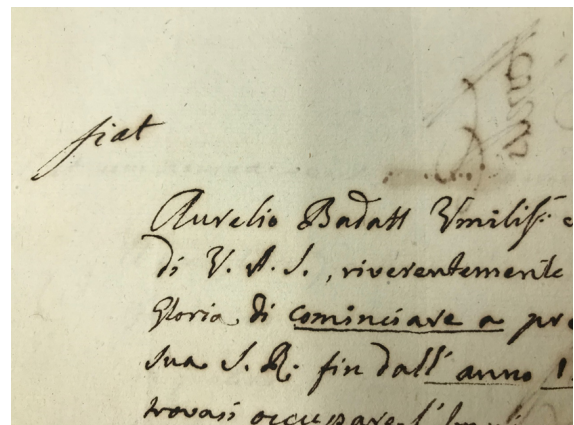 fiat
Aurelio Badatt Umiliss.
di V. A. S., riverentemente
Gloria di cominciare a pre
sua S. R. fin dall' anno 1
trovasi occupare l'